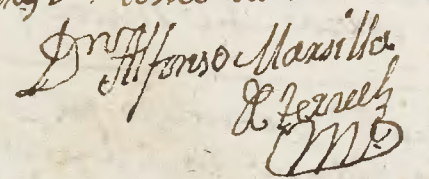 Dn Alfonso Marsilla
de Teruel